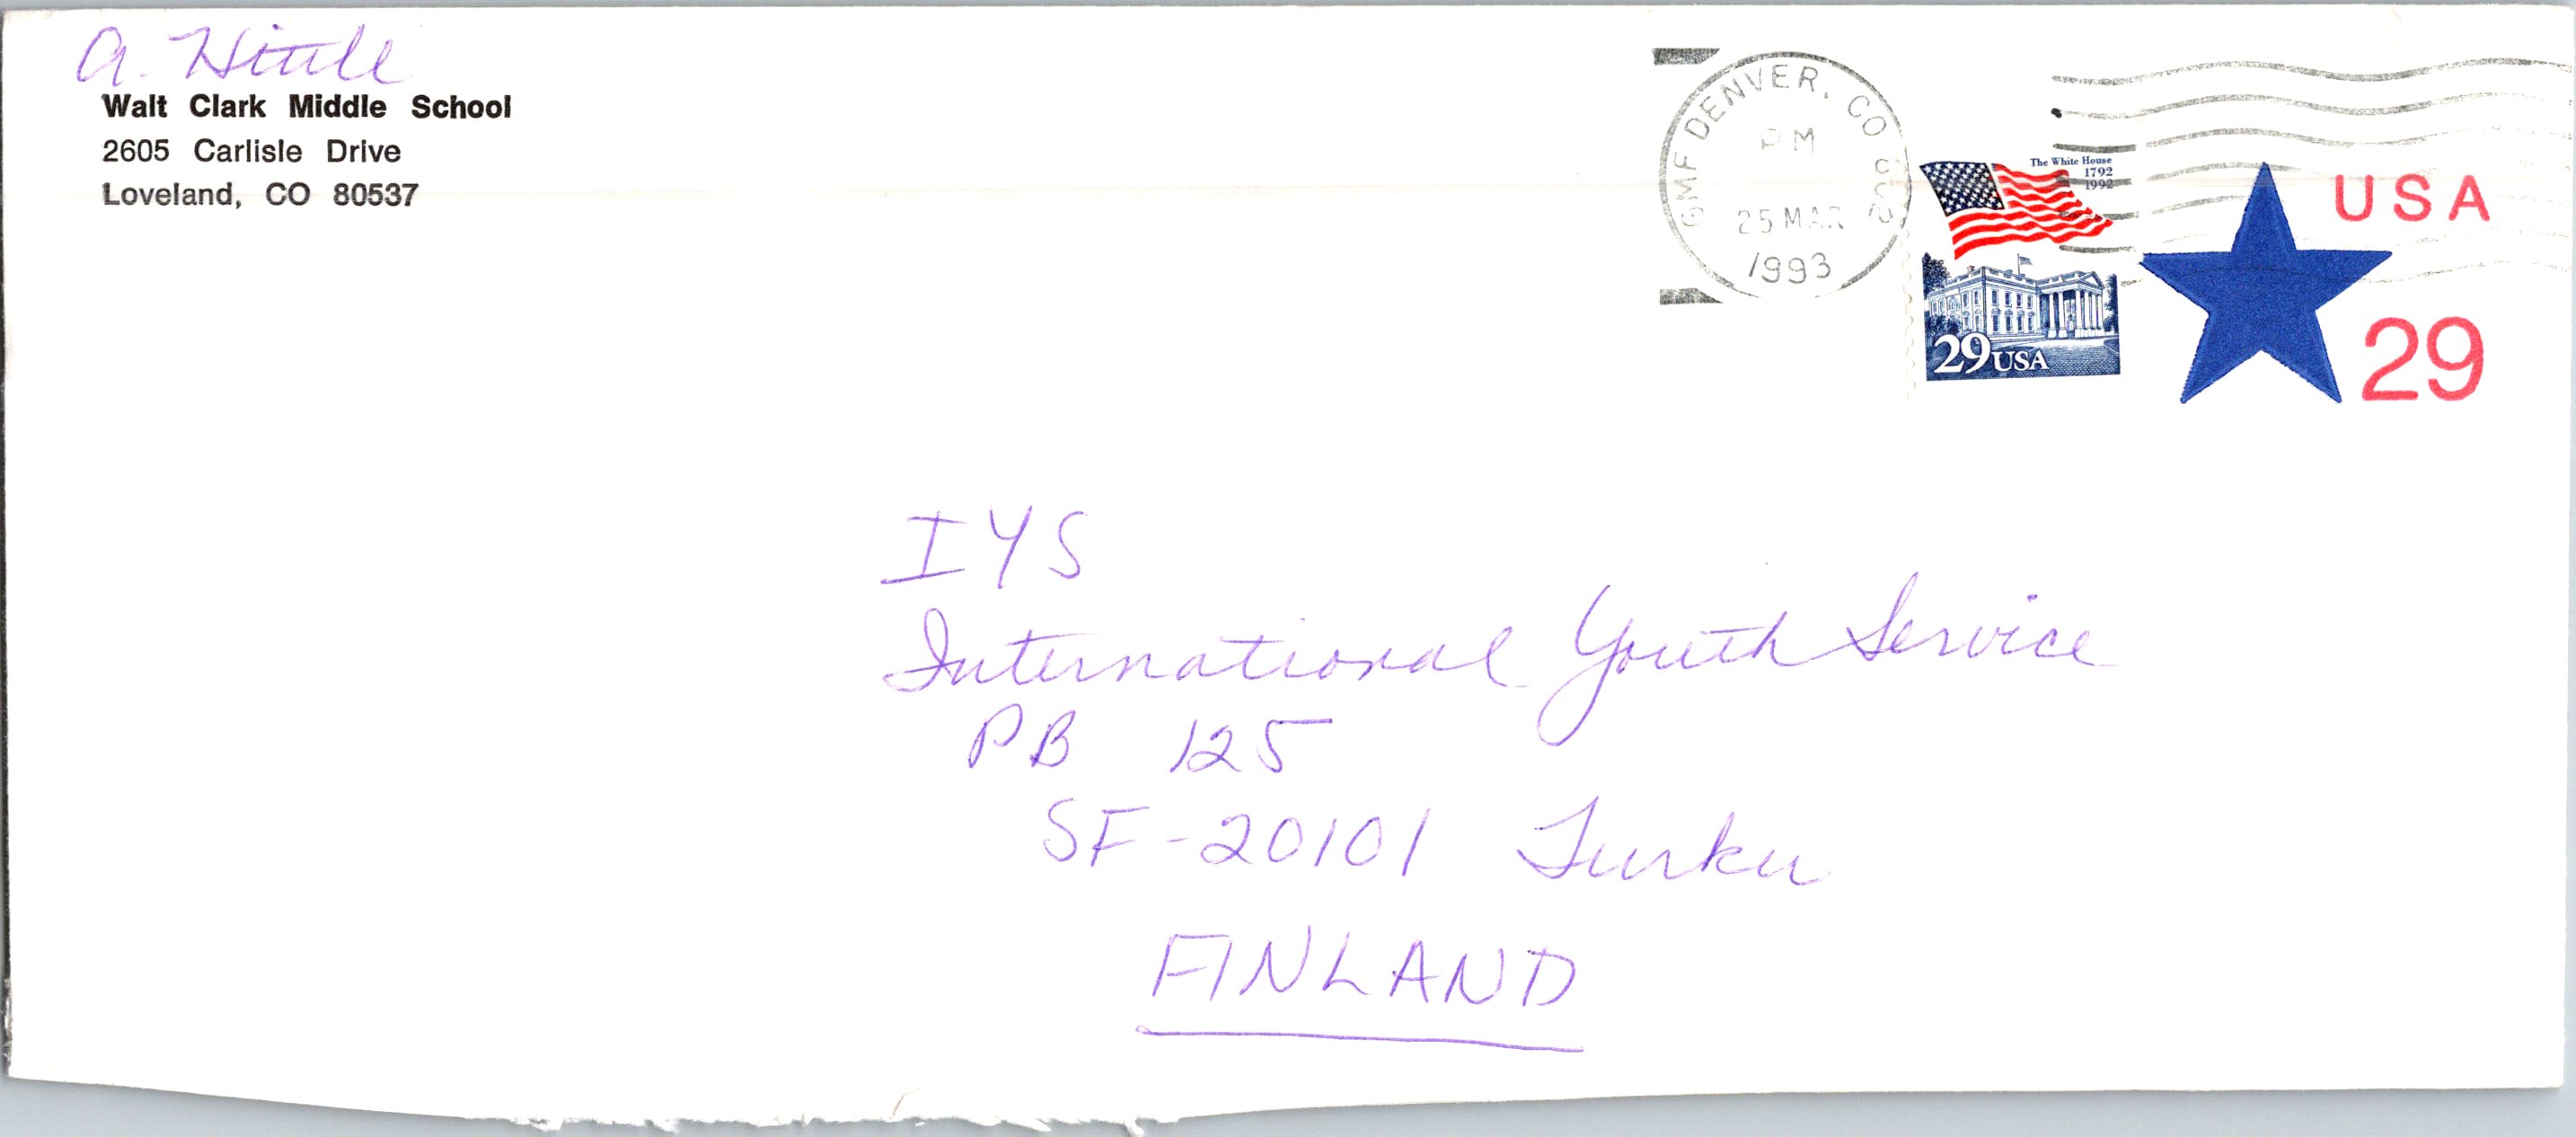 Walt Clark Middle School
2605 Carlisle Drive
Loveland, CO 80537
GMF DENVER, CO
PM
25 MAR
1993
The White House
1792
1992
29 USA
USA
29
IYS
International Youth Service
PB 125
SF-20101 Turku
FINLAND